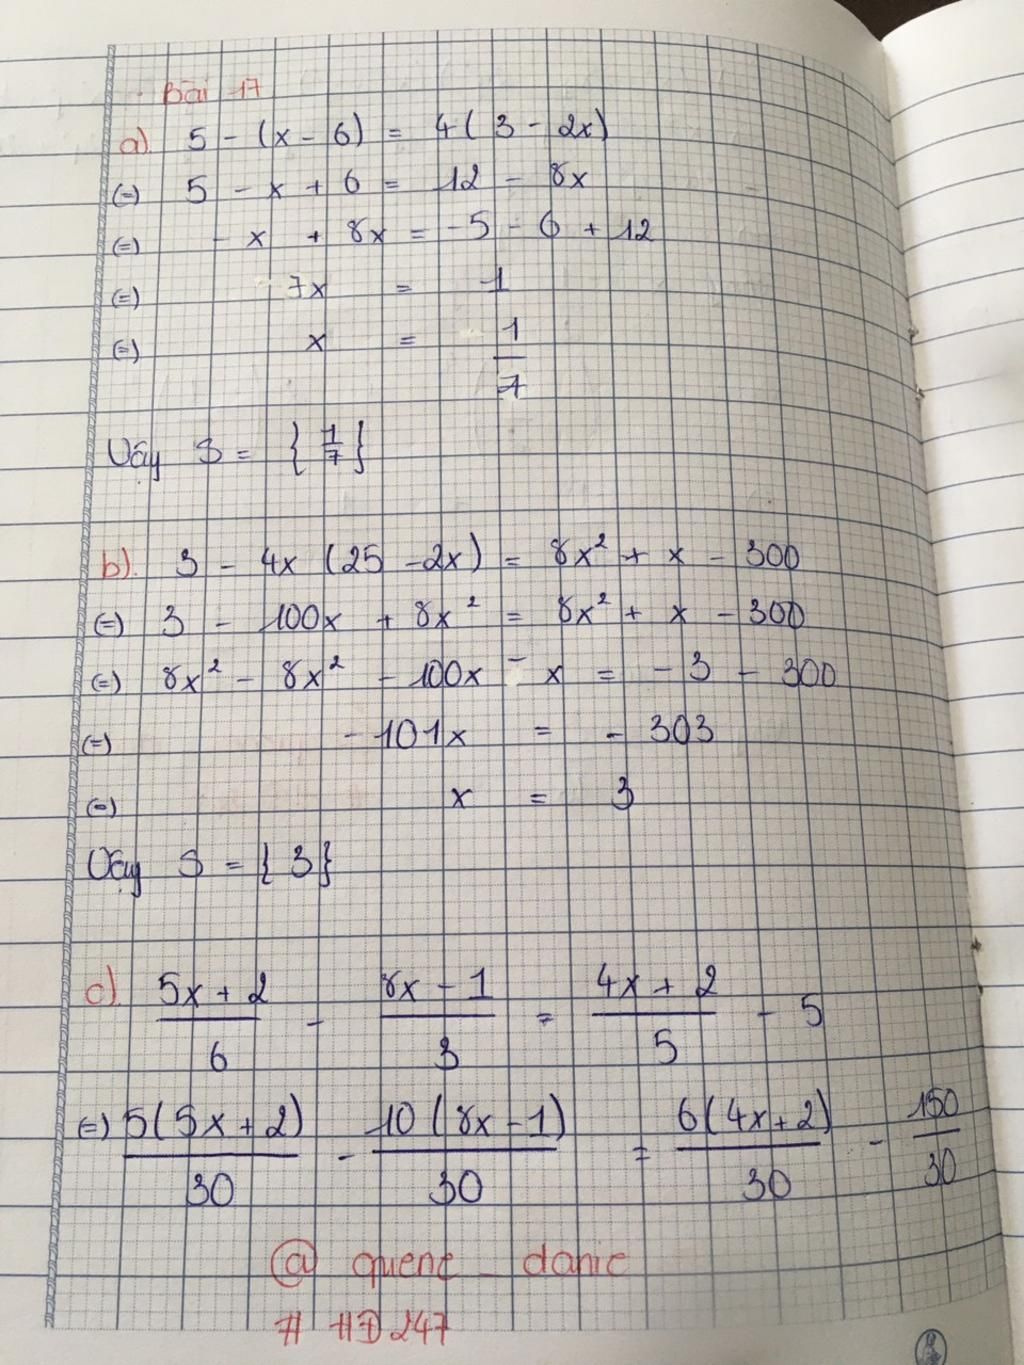 Bài 17
a) 5 - (x - 6) = 4( 3 - 2x)
(=) 5 - x + 6 = 12 - 8x
(=) - x + 8x = -5 - 6 + 12
(=) 7x = 1
(=) x = 1/7
Vậy S = { 1/7 }
b). 3 - 4x (25 - 2x) = 8x² + x - 300
(=) 3 - 100x + 8x² = 8x² + x - 300
(=) 8x² - 8x² - 100x - x = - 3 - 300
(=) - 101x = - 303
(=) x = 3
Vậy S = { 3 }
c). (5x + 2)/6 - (8x - 1)/3 = (4x + 2)/5 - 5
(=) 5(5x + 2)/30 - 10(8x - 1)/30 = 6(4x + 2)/30 - 150/30
@ quene _ danie
# HD247